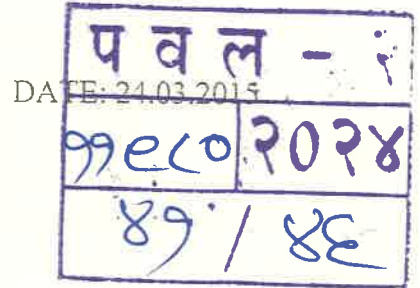 पवल -
DATE: 24.03.2015
११९८० २०२४
४१ / ४६